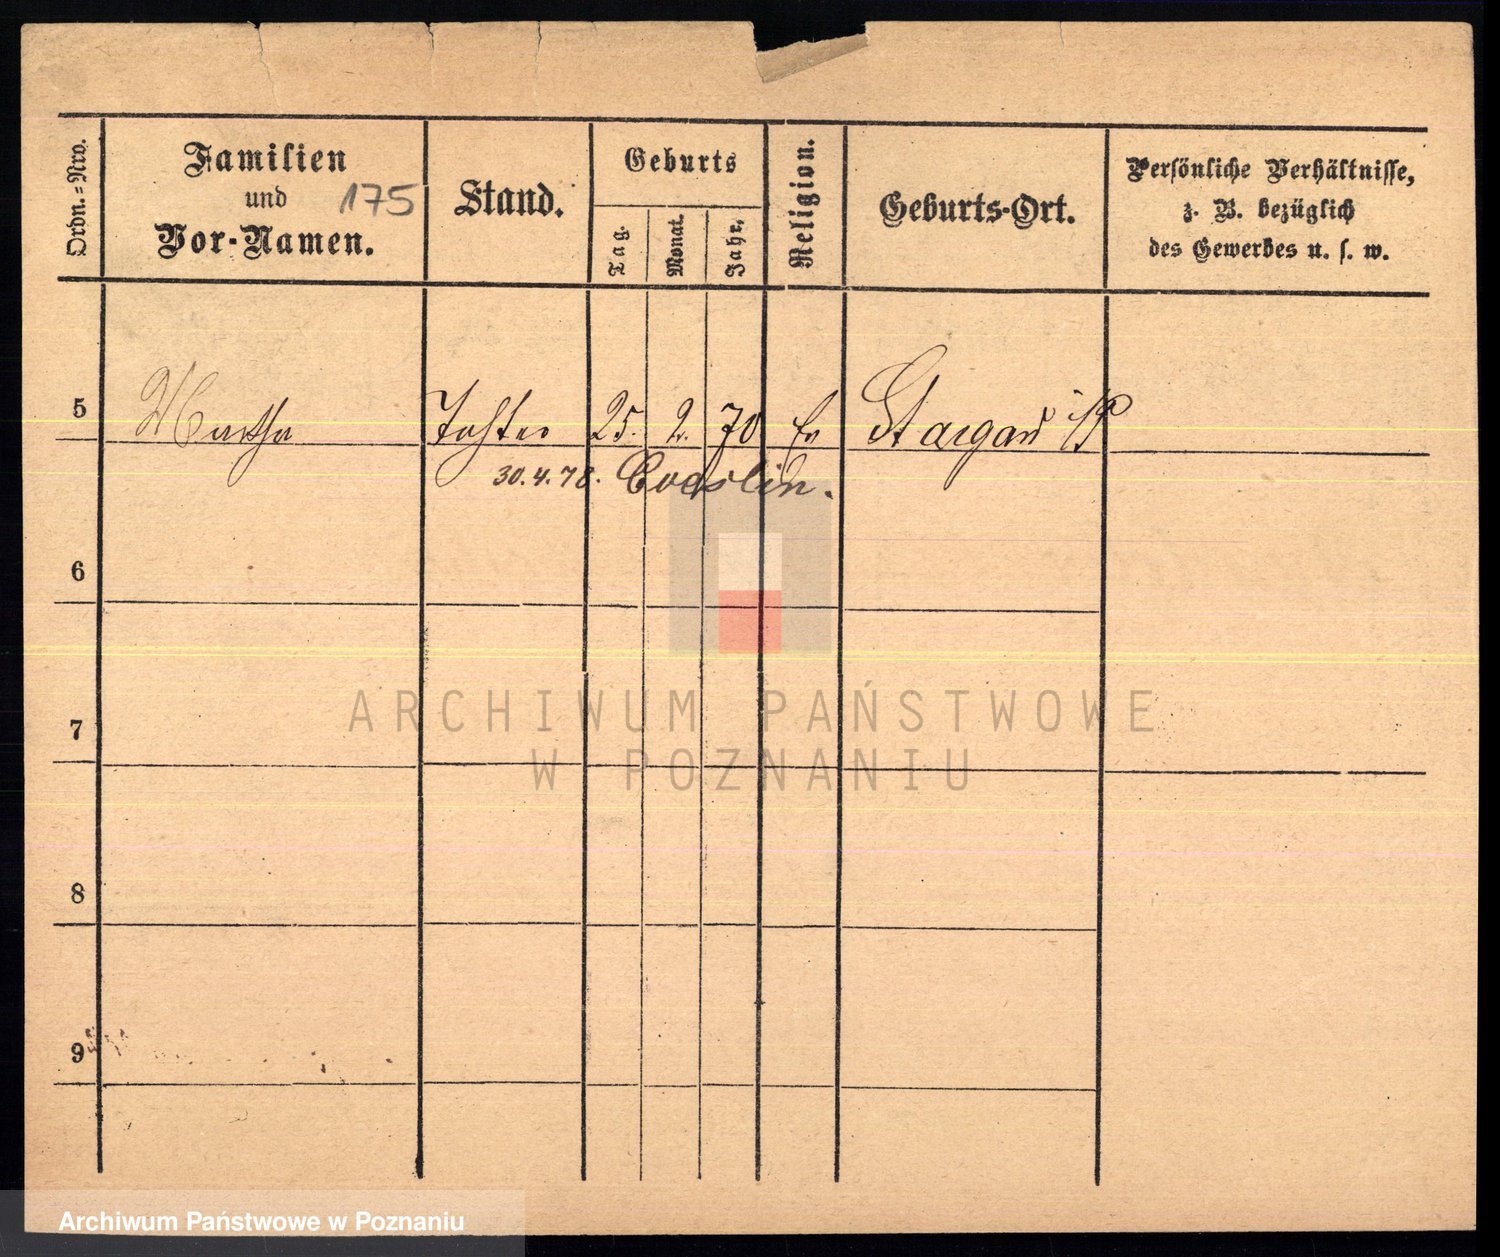 Ordn.=Nro.
Familien
und 175
Vor-Namen.
Stand.
Geburts
Tag.
Monat.
Jahr.
Religion.
Geburts-Ort.
Persönliche Verhältnisse,
z. B. bezüglich
des Gewerbes u. s. w.
5 Martha Tochter 25. 2. 70 Ev Stargard i/P
30.4.78. Coeslin.
6
7
8
9
ARCHIWUM PAŃSTWOWE
W POZNANIU
Archiwum Państwowe w Poznaniu